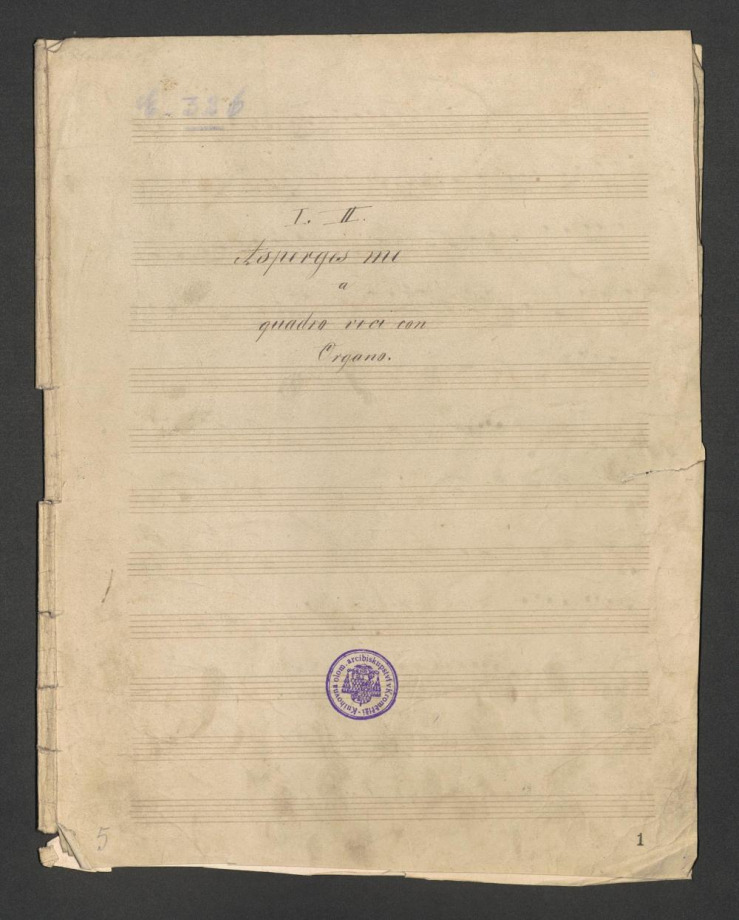 I. II.
Asperges me
a
quadro voci con
Organo.
Knihovna olom. arcibiskupství v Kroměříži
5
1